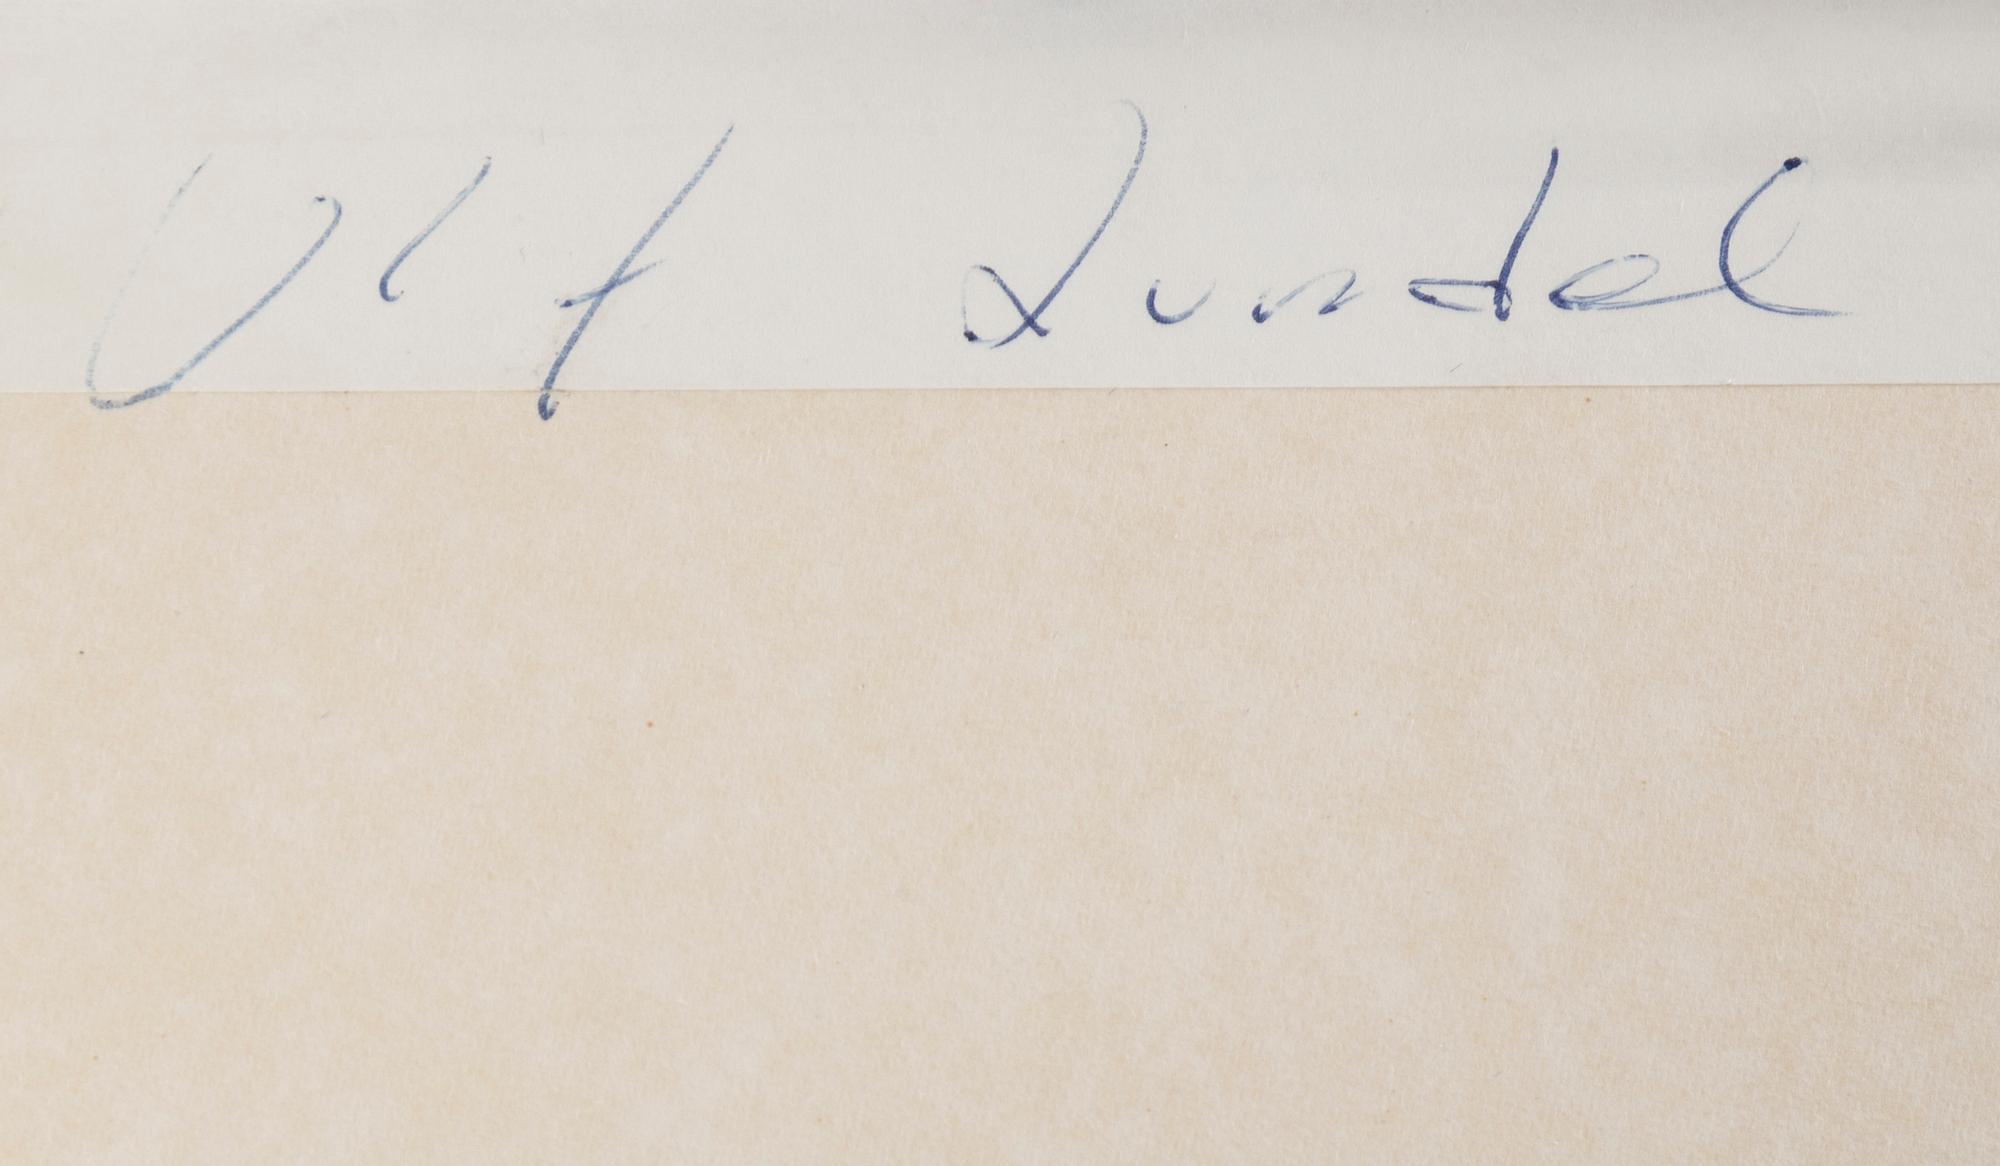 Ulf Lundel